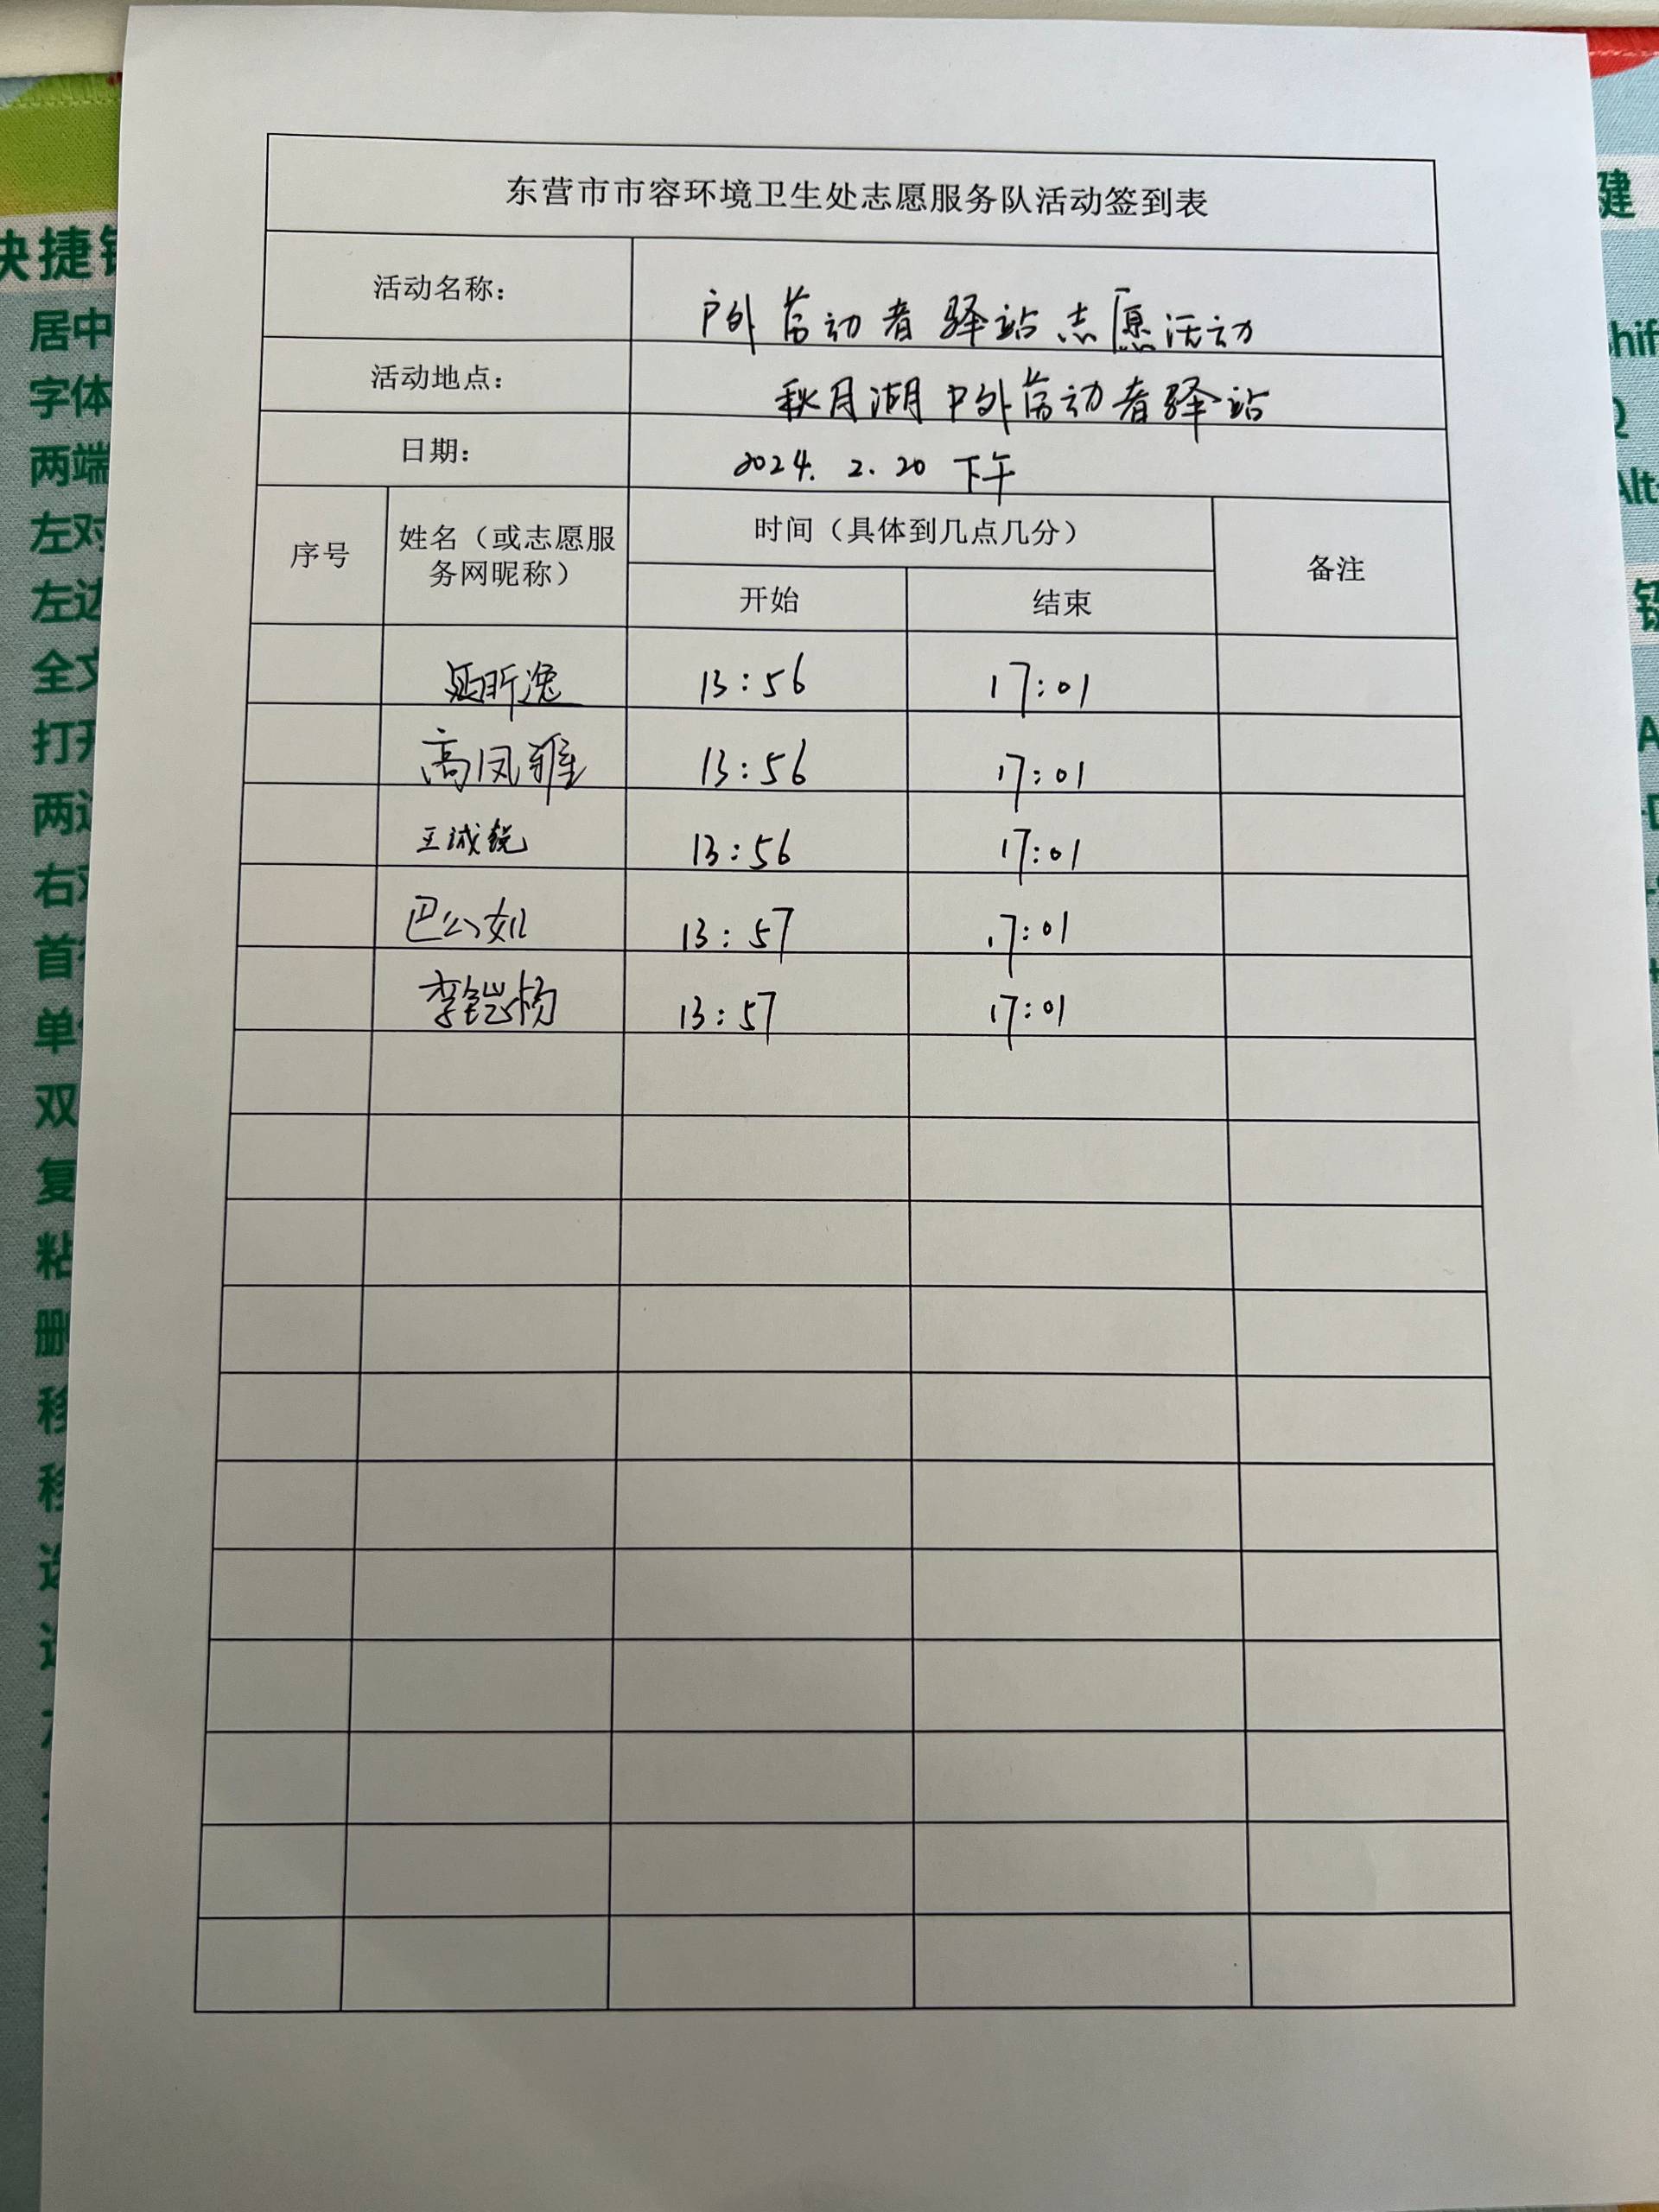 东营市市容环境卫生处志愿服务队活动签到表
活动名称：
户外劳动者驿站志愿活动
活动地点：
秋月湖户外劳动者驿站
日期：
2024.2.20 下午
序号
姓名（或志愿服
务网昵称）
时间（具体到几点几分）
备注
开始
结束
昕逸 13:56 17:01
高凤雅 13:56 17:01
王诚锐 13:56 17:01
巴公如 13:57 17:01
李铠杨 13:57 17:01
快捷
居中
字体
两端
左对
左边
全文
打开
两边
右对
首行
单
双
复
粘
删
移
移
选
建